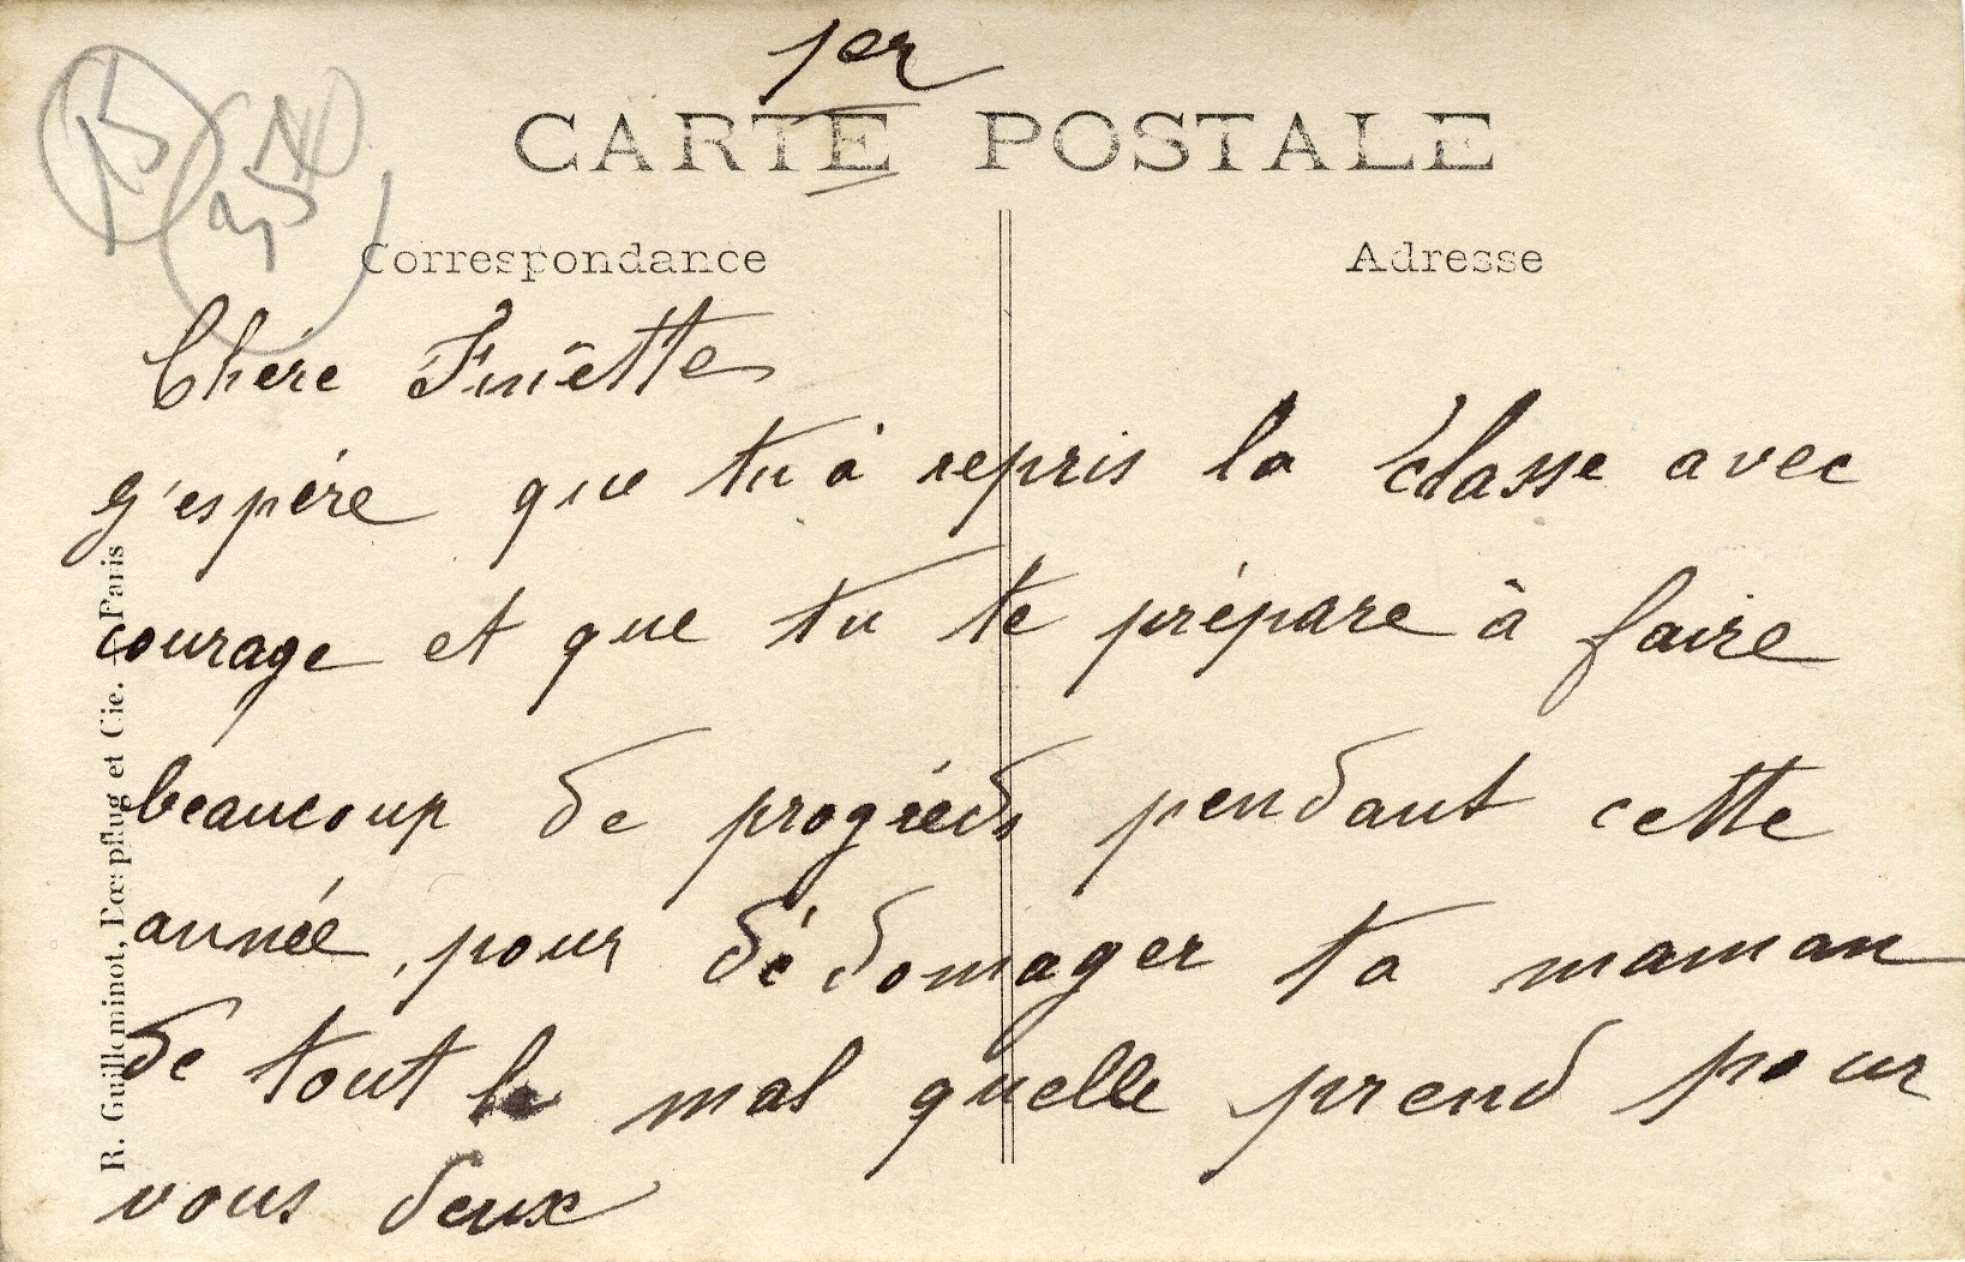 1er
CARTE POSTALE
Correspondance
Adresse
Chére Finètte
g'espére que tu à repris la classe avec
courage et que tu te prépare à faire
beaucoup de progréds pendant cette
année, pour dédomager ta maman
de tout le mal quelle prend pour
vous deux
R. Guilleminot, Bœspflug et Cie. - Paris
15